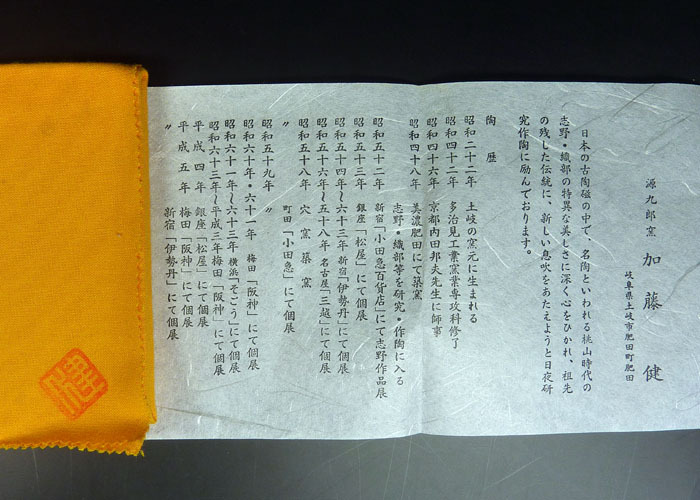 源九郎窯 加藤 健
岐阜県土岐市肥田町肥田
日本の古陶磁の中で、名陶といわれる桃山時代の
志野・織部の特異な美しさに深く心をひかれ、祖先
の残した伝統に、新しい息吹をあたえようと日夜研
究作陶に励んでおります。
陶 歴
昭和二十二年 土岐の窯元に生まれる
昭和四十二年 多治見工業窯業専攻科修了
昭和四十六年 京都内田邦夫先生に師事
昭和四十八年 美濃肥田にて築窯
志野・織部等を研究・作陶に入る
昭和五十二年 新宿「小田急百貨店」にて志野作品展
昭和五十三年 銀座「松屋」にて個展
昭和五十四年～六十三年 新宿「伊勢丹」にて個展
昭和五十六年～五十八年 名古屋「三越」にて個展
昭和五十八年 穴窯築窯
〃 町田「小田急」にて個展
昭和五十九年 〃
昭和六十年・六十一年 梅田「阪神」にて個展
昭和六十一年～六十三年 横浜「そごう」にて個展
昭和六十三年～平成三年 梅田「阪神」にて個展
平成四年 銀座「松屋」にて個展
平成五年 梅田「阪神」にて個展
〃 新宿「伊勢丹」にて個展